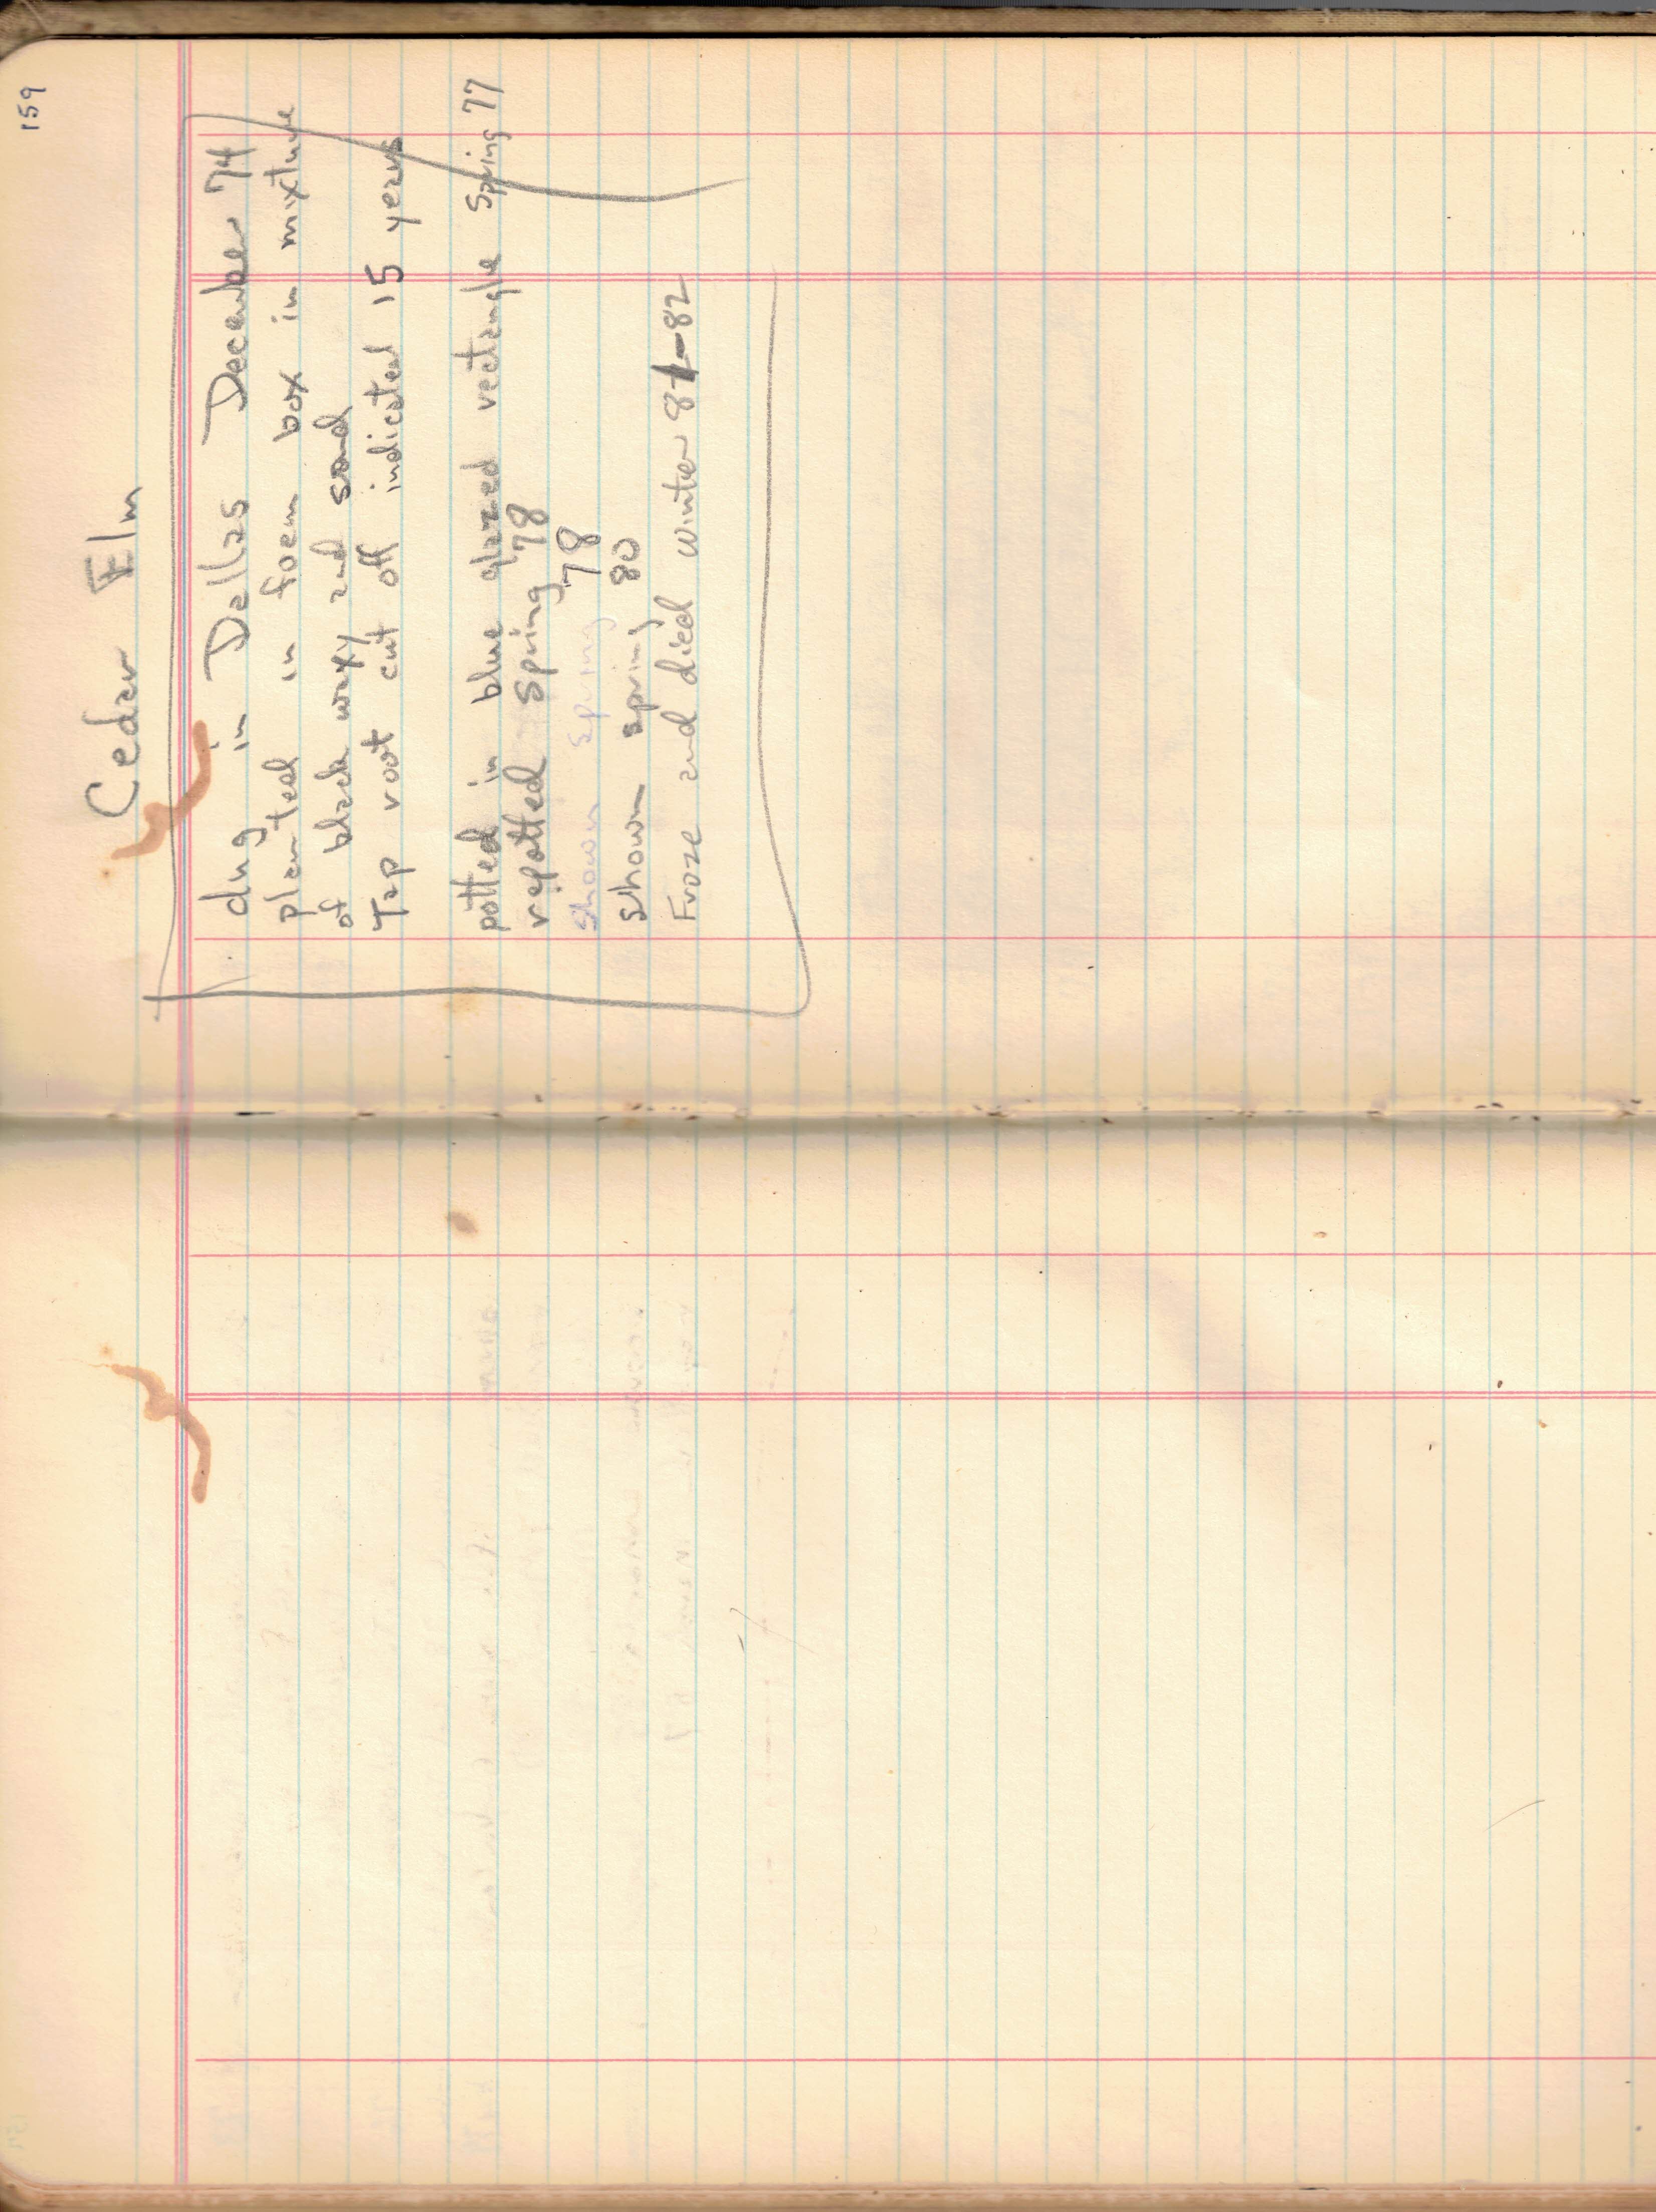 159
Cedar Elm
dug in Dallas December 74
planted in foam box in mixture
of black waxy and sand
Tap root cut off indicated 15 years
potted in blue glazed rectangle Spring 77
repotted Spring 78
shown Spring 78
shown spring 80
Froze and died winter 81-82